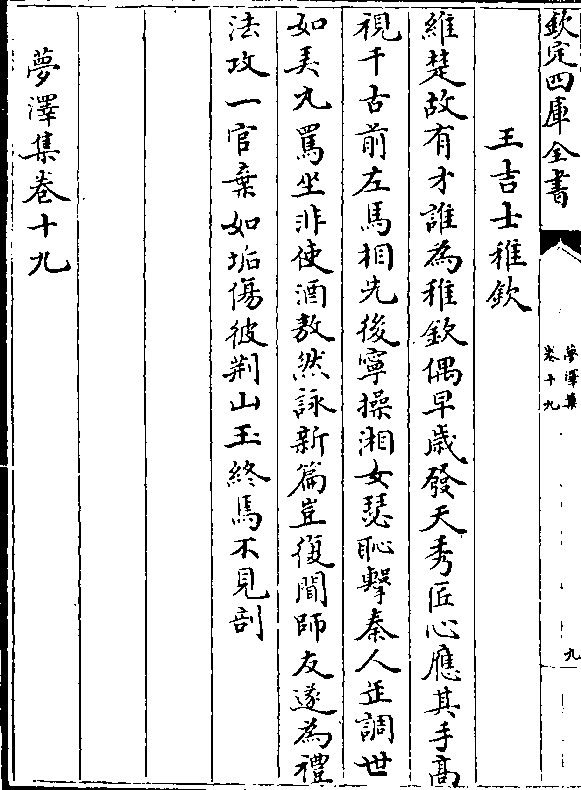 欽定四庫全書
夢澤集
卷十九
九
王吉士稚欽
維楚故有才誰為稚欽偶早歲發天秀匠心應其手高
視千古前左馬相先後寧操湘女瑟恥擊秦人缶調世
如美尢罵坐非使酒敖然詠新篇豈復間師友遂為禮
法攻一官棄如垢傷彼荆山玉終焉不見剖
夢澤集卷十九